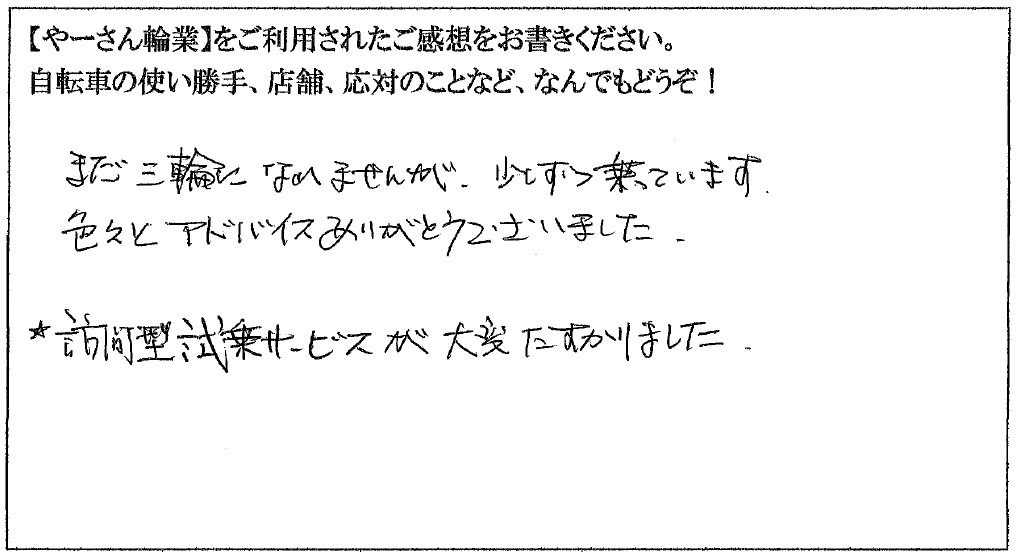 【やーさん輪業】をご利用されたご感想をお書きください。
自転車の使い勝手、店舗、応対のことなど、なんでもどうぞ！
まだ三輪になれませんが、少しずつ乗っています。
色々とアドバイスありがとうございました。
*訪問型試乗サービスが大変たすかりました。